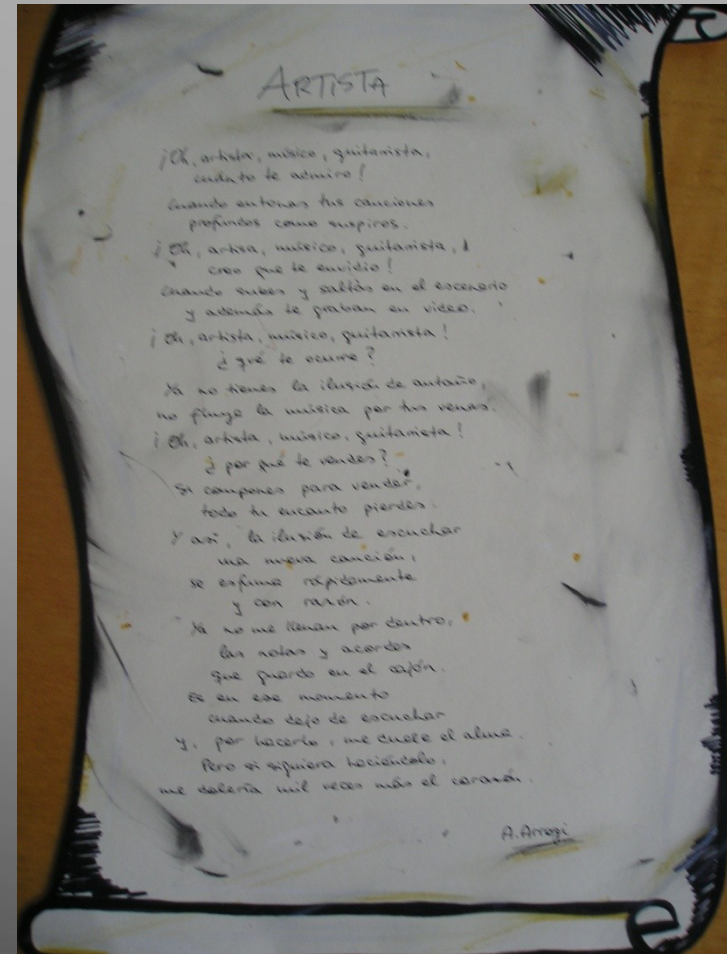 ARTISTA
¡Oh, artista, músico, guitarrista,
cuánto te admiro!
Cuando entonas tus canciones
profundos como suspiros.
¡Oh, artisa, músico, guitarrista,
creo que te envidio!
Cuando subes y saltas en el escenario
y además te graban en video.
¡Oh, artista, músico, guitarrista!
¿qué te ocurre?
Ya no tienes la ilusión de antaño,
no fluye la música por tus venas.
¡Oh, artista, músico, guitarrista!
¿por qué te vendes?
Si compones para vender,
todo tu encanto pierdes.
Y así, la ilusión de escuchar
una nueva canción,
se esfuma rápidamente
y con razón.
Ya no me llenan por dentro,
las notas y acordes
que guardo en el cajón.
Es en ese momento
cuando dejo de escuchar
y, por hacerlo, me duele el alma.
Pero si siguiera haciéndolo,
me dolería mil veces más el corazón.
A. Arregi